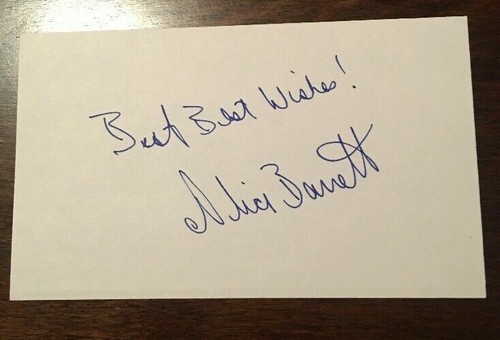 Best Best Wishes!
Alice Barrett